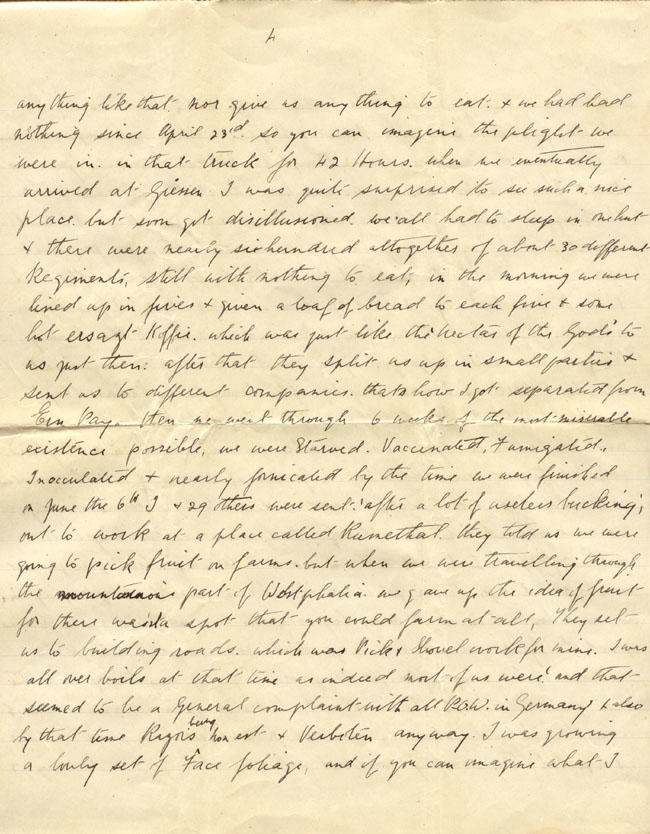 4
anything like that nor give us anything to eat. & we had had
nothing since April 23rd. so you can imagine the plight we
were in. in that truck for 42 Hours. when we eventually
arrived at Giessen I was quite surprised to see such a nice
place. but soon got disillusioned. we all had to sleep in one hut
& there were nearly sixhundred altogether of about 30 different
Regiments, still with nothing to eat, in the morning we were
lined up in fives & given a loaf of bread to each five & some
hot ersazt Koffie. which was just like the nectar of the Gods to
us just then: after that they split us up in small parties &
sent us to different companies. thats how I got separated from
Ern Pay. then we went through 6 weeks of the most miserable
existence possible, we were Starved. Vaccinated, Fumigated,
Inoculated & nearly fornicated by the time we were finished
on June the 6th I & 29 others were sent. 'after a lot of useless bucking',
out to work at a place called they told us we were
going to pick fruit on farms. but when we were travelling through
the mountainous part of Westphalia. we gave up the idea of fruit
for there wasnt a spot that you could farm at all, They set
us to building roads. which was Pick & Shovel work for mine. I was
all over boils at that time as indeed most of us were' and that
seemed to be a General complaint with all P.O.W. in Germany & also
by that time Razors being non est & Verboten anyway. I was growing
a lovely set of Face foliage, and if you can imagine what I